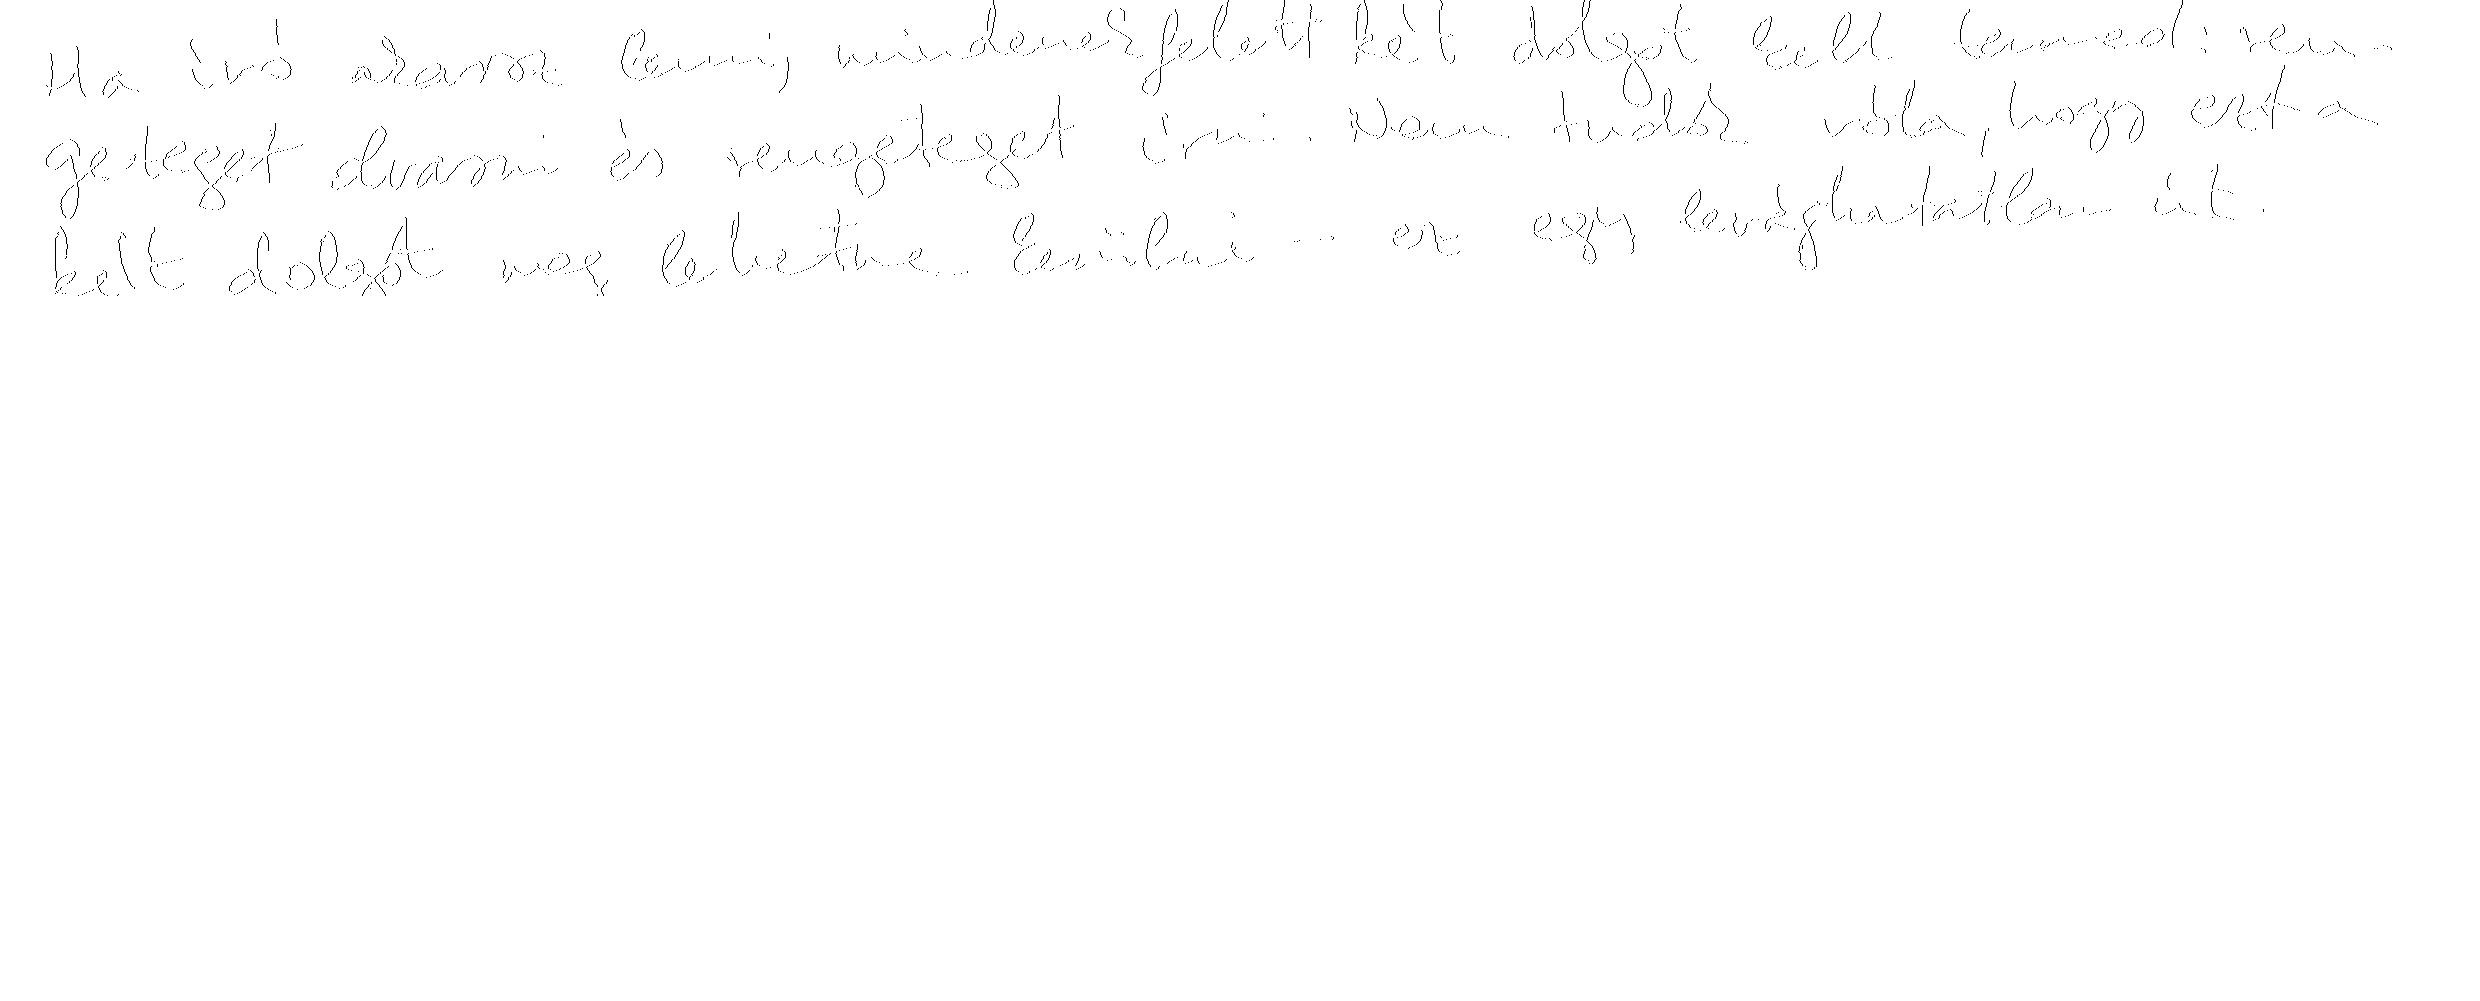 Ha író akarsz lenni, mindenekfelett két dolgot kell tenned: ren-
geteget olvasni és rengeteget írni. Nem tudok róla, hogy ezt a
két dolgot meg lehetne kerülni – ez egy levághatatlan út.